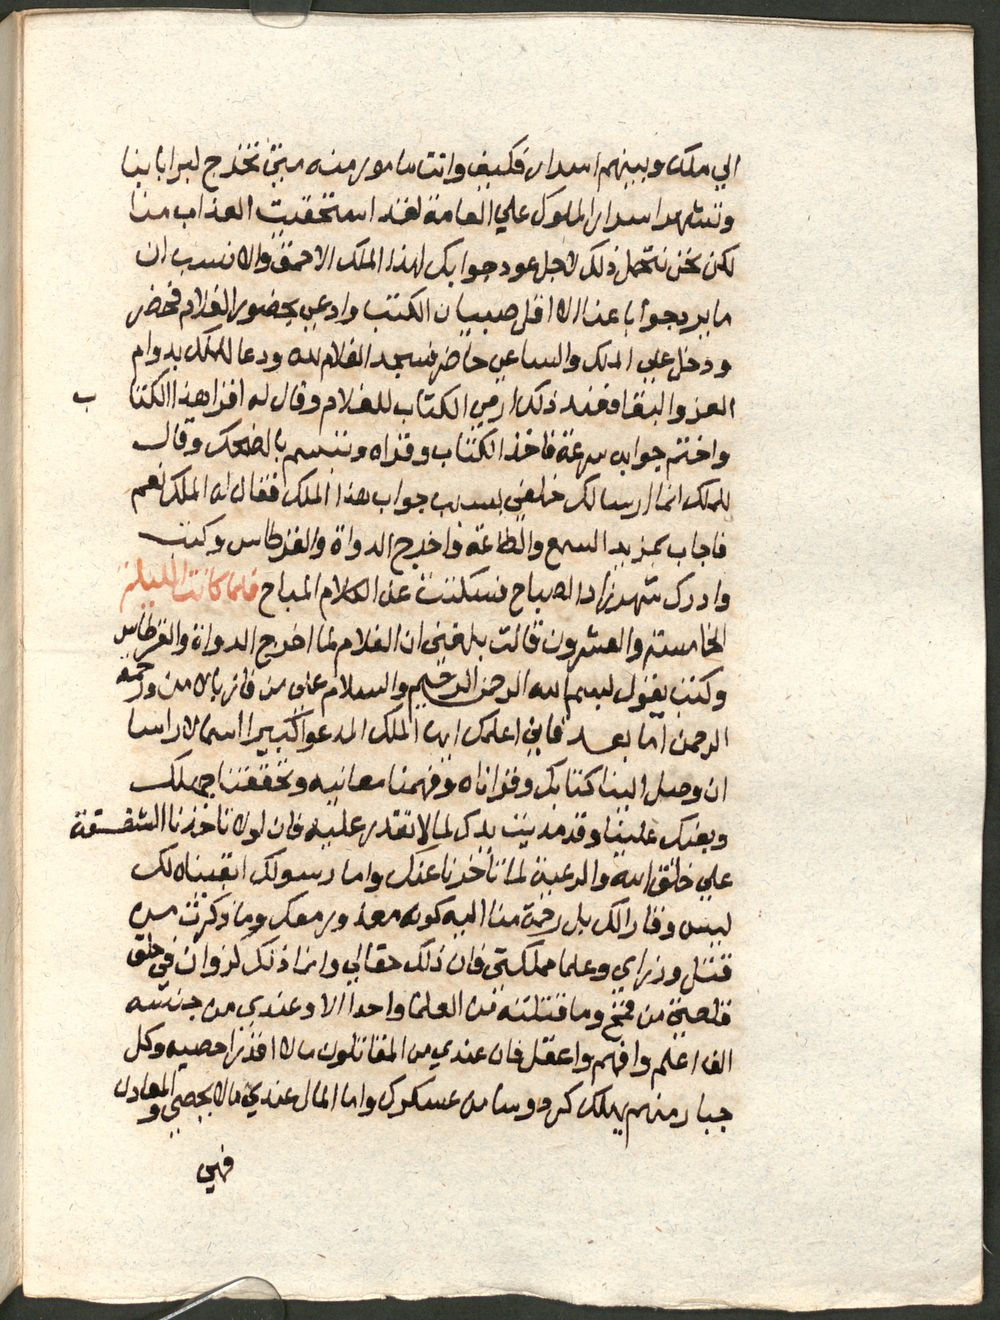 الي ملك وبينهم اسرار فكيف وانت مامور منه متي تخرج لبرا باينا
وتشهر اسرار الملوك علي العامة لقد استحقيت العذاب منا
لكن نحن نتحمل ذلك لاجل عود جوابك لهذا الملك الاحمق والانسب ان
ما يرد جوابا عنا الا اقل صبيان الكتب وادعي بحضور الغلام فحضر
ودخل علي الملك والساعي حاضر فسجد الغلام لله ودعا للملك بدوام
العز والبقا فعند ذلك ارمي الكتاب للغلام وقال له اقرا هذا الكتا ب
واختم جوابه سرعة فاخذ الكتاب وقراه وتبسم بالضحك وقال
للملك انما ارسالك خلفي بسبب جواب هذا الملك فقال له الملك نعم
فاجاب بمزيد السمع والطاعة واخرج الدواة والقرطاس وكتب
وادرك شهرزاد الصباح فسكتت عن الكلام المباح فلما كانت الليلة
الخامسة والعشرون قالت بلغني ان الغلام لما اخرج الدواة والقرطاس
وكتب يقول بسم الله الرحمن الرحيم والسلام علي من فاز بالامن ورحمة
الرحمن اما بعد فاني اعلمك ايها الملك المدعوا كبيرا اسما لا راسا
ان وصل الينا كتابك وقراناه وفهمنا معانيه وتحققنا جهلك
وبغيك علينا وقد مديت يدك لما لا تقدر عليه فان لولا تاخذنا الشفقة
علي خلق الله والرعية لما تاخرنا عنك واما رسولك ابقيناه لك
ليس وقارا لك بل رحمة منا اليه كونه معذور معك وما ذكرت من
قتل وزراي وعلما مملكتي فان ذلك حقا لي وانما ذلك لزوان في خلق
قلعتي من قمح وما قتلت من العلما واحدا الا وعندي من جنسه
الف اعلم وافهم واعقل فان عندي من المقاتلون ما لا اقدر احصيه وكل
جبار منهم يهلك كردوسا من عسكرك واما المال عندي ما لا يحصي والمعادن
فهي